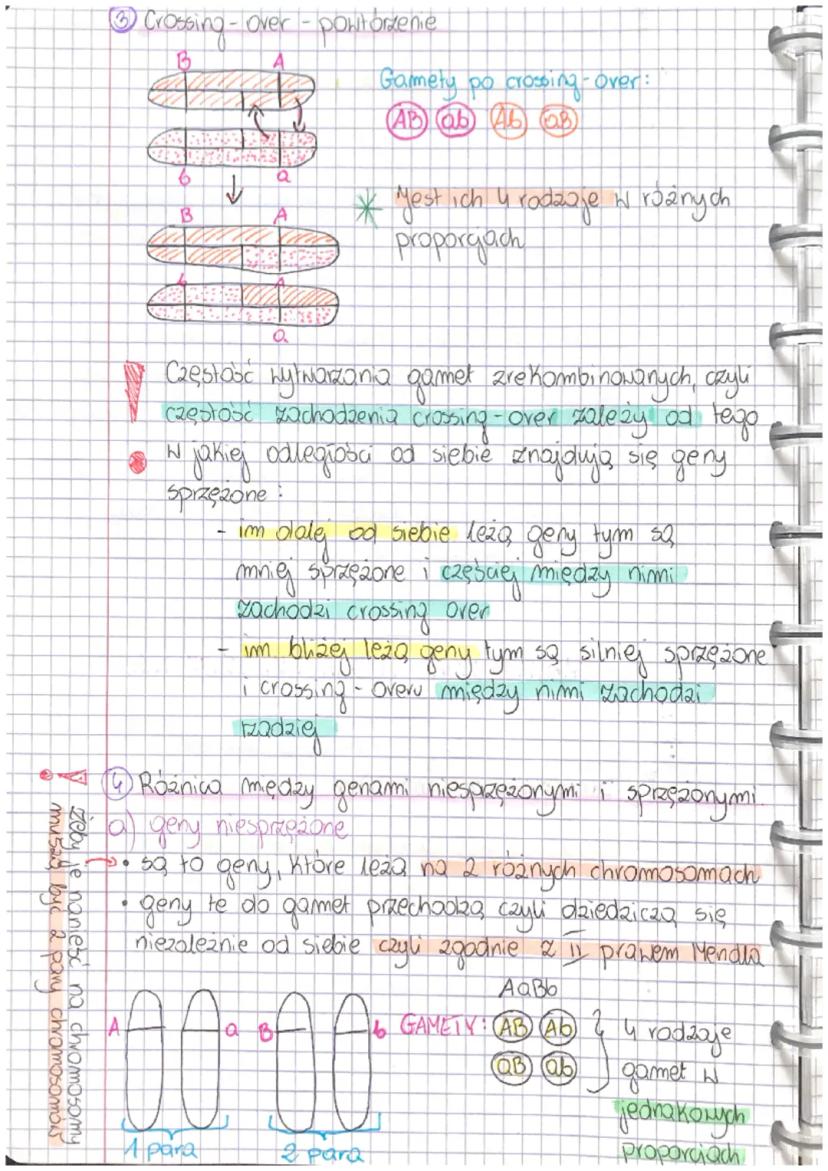 3 Crossing-over - powtórzenie
B A
Gamety po crossing-over:
AB ab Ab aB
b a
* Jest ich 4 rodzaje w różnych
proporcjach
B A
b A
a
Częstość wytwarzania gamet zrekombinowanych, czyli
częstość zachodzenia crossing-over zależy od tego
w jakiej odległości od siebie znajdują się geny
sprzężone:
- im dalej od siebie leżą geny tym są
mniej sprzężone i częściej między nimi
zachodzi crossing over
- im bliżej leżą geny tym są silniej sprzężone
i crossing-overu między nimi zachodzi
rzadziej
4 Różnica między genami niesprzężonymi i sprzężonymi
a) geny niesprzężone
• są to geny, które leżą na 2 różnych chromosomach
• geny te do gamet przechodzą czyli dziedziczą się
niezależnie od siebie czyli zgodnie z II prawem Mendla
żeby je nanieść na chromosomy
muszą być 2 pary chromosomów
AaBb
A a B b GAMETY: AB Ab } 4 rodzaje
aB ab gamet w
jednakowych
1 para 2 para proporcjach